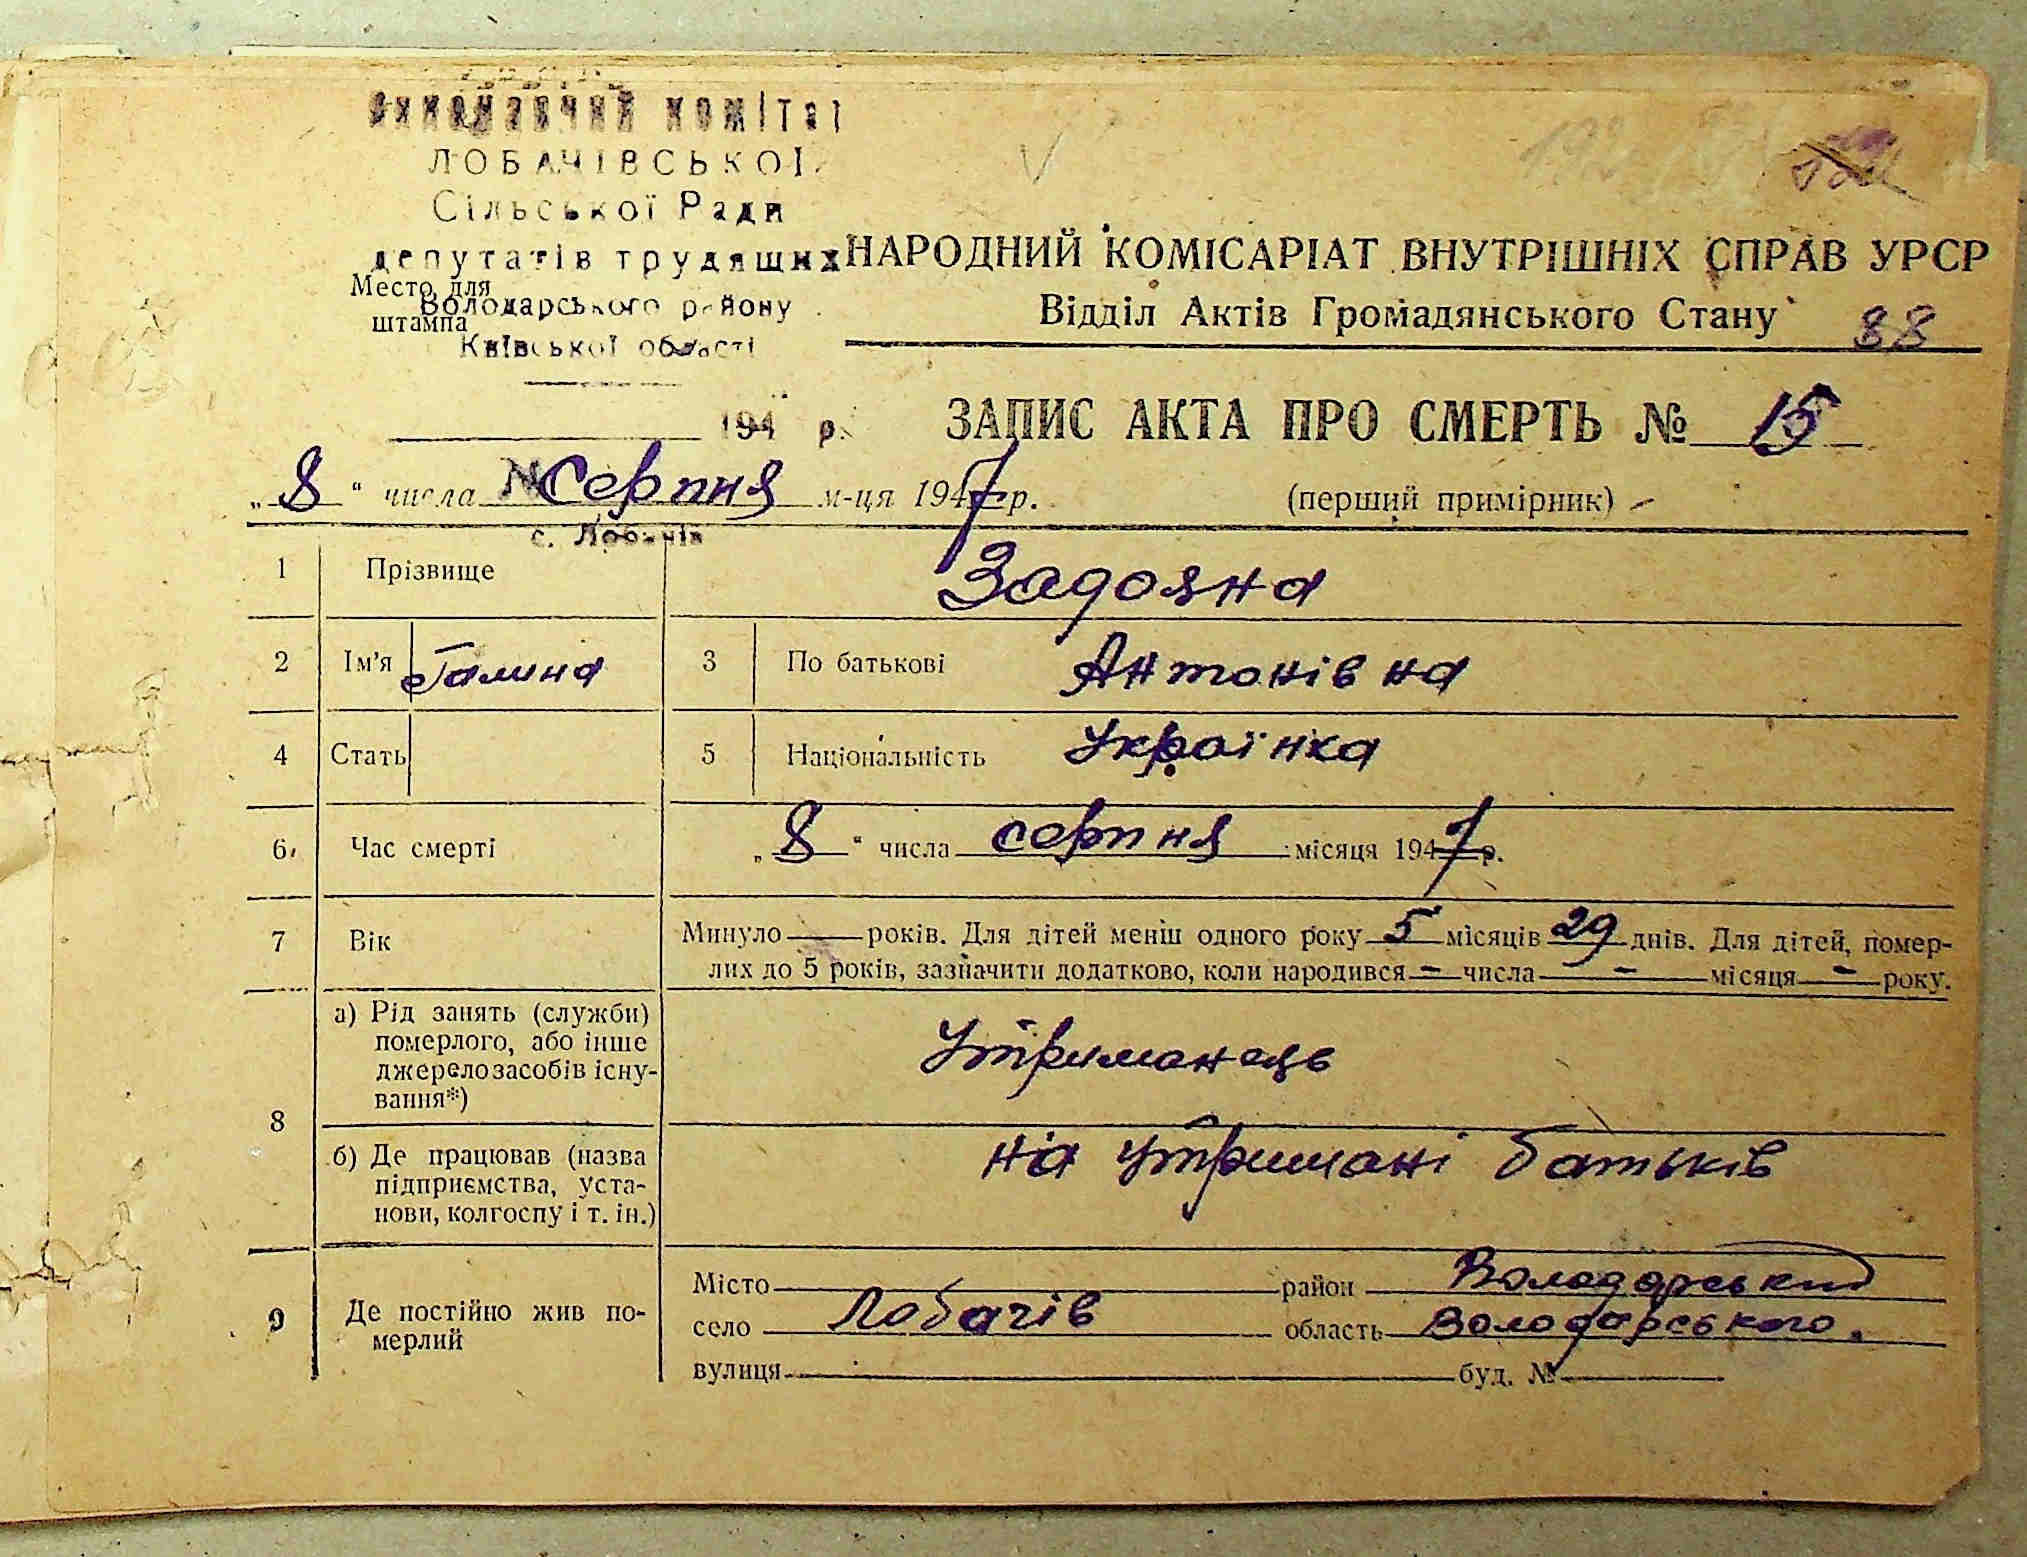 Виконавчий комітет
ЛОБАЧІВСЬКОЇ
Сільської Ради
депутатів трудящих
Место для
штампа
Володарського району
Київської області
НАРОДНИЙ КОМІСАРІАТ ВНУТРІШНІХ СПРАВ УРСР
Відділ Актів Громадянського Стану 88
194 р.
ЗАПИС АКТА ПРО СМЕРТЬ № 15
„ 8 “ числа Серпня м-ця 1947 р. (перший примірник)
с. Лобачів
1 Прізвище Задояна
2 Ім'я Галина 3 По батькові Антонівна
4 Стать 5 Національність Українка
6 Час смерті „ 8 “ числа серпня місяця 1947 р.
7 Вік Минуло — років. Для дітей менш одного року 5 місяців 29 днів. Для дітей, помер-
лих до 5 років, зазначити додатково, коли народився - числа - місяця - року.
8 а) Рід занять (служби)
померлого, або інше
джерело засобів існу-
вання*)
Утриманець
б) Де працював (назва
підприємства, уста-
нови, колгоспу і т. ін.)
на утримані батьків
9 Де постійно жив по-
мерлий
Місто район Володарський
село Лобачів область Володарського.
вулиця буд. №